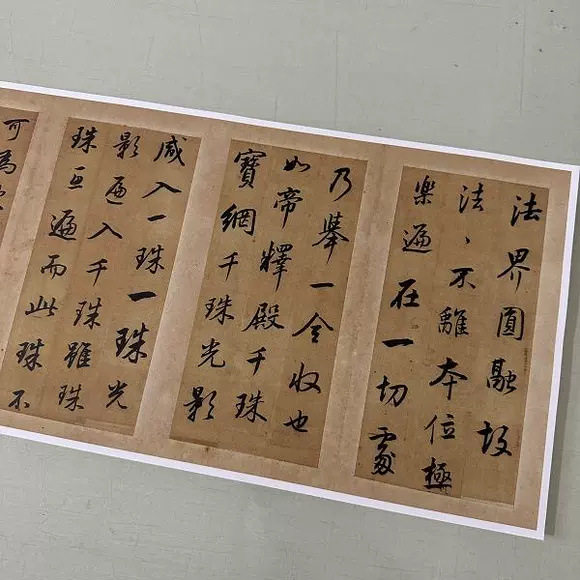 法界圓融故
法、不離本位極
樂遍在一切處
乃舉一全收也
如帝釋殿千珠
寶網千珠光影
咸入一珠一珠光
影遍入千珠雖珠
珠互遍而此珠不
可為